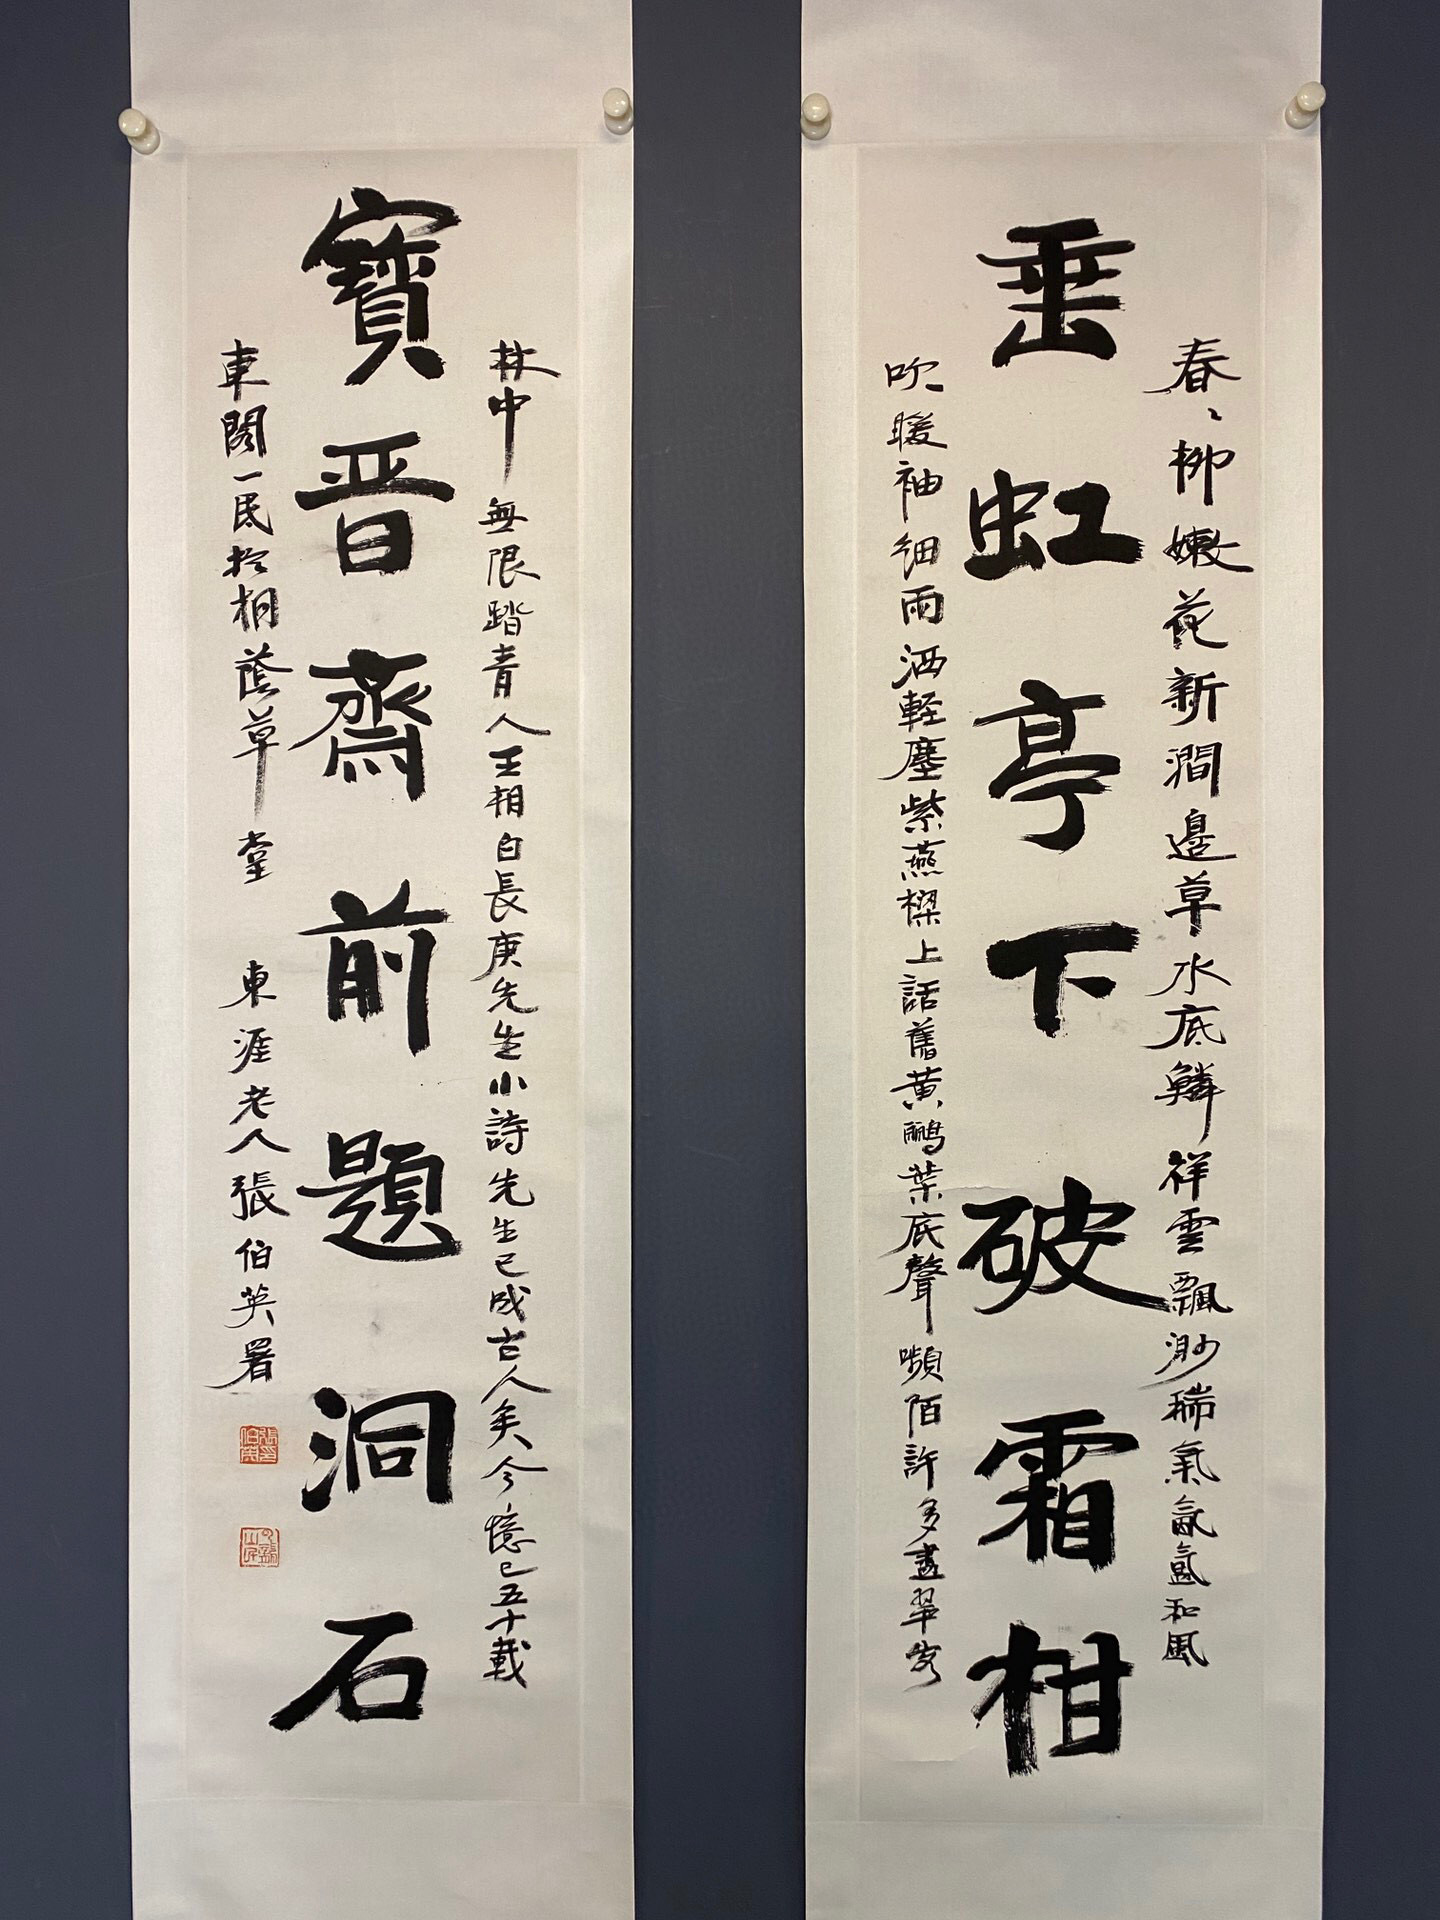 春〻柳嫩花新澗邊草水底鱗祥雲飄渺瑞氣氤氳和風
垂虹亭下破霜柑
吹暖袖細雨洒軽塵紫燕樑上話舊黄鸝葉底聲頻陌許多盡翠
林中無限踏青人王相白長庚先生小詩先生已成古人矣今憶已五十載
寶晋齋前題洞石
東閣一民於桐蔭草堂 東涯老人張伯英署
張伯英